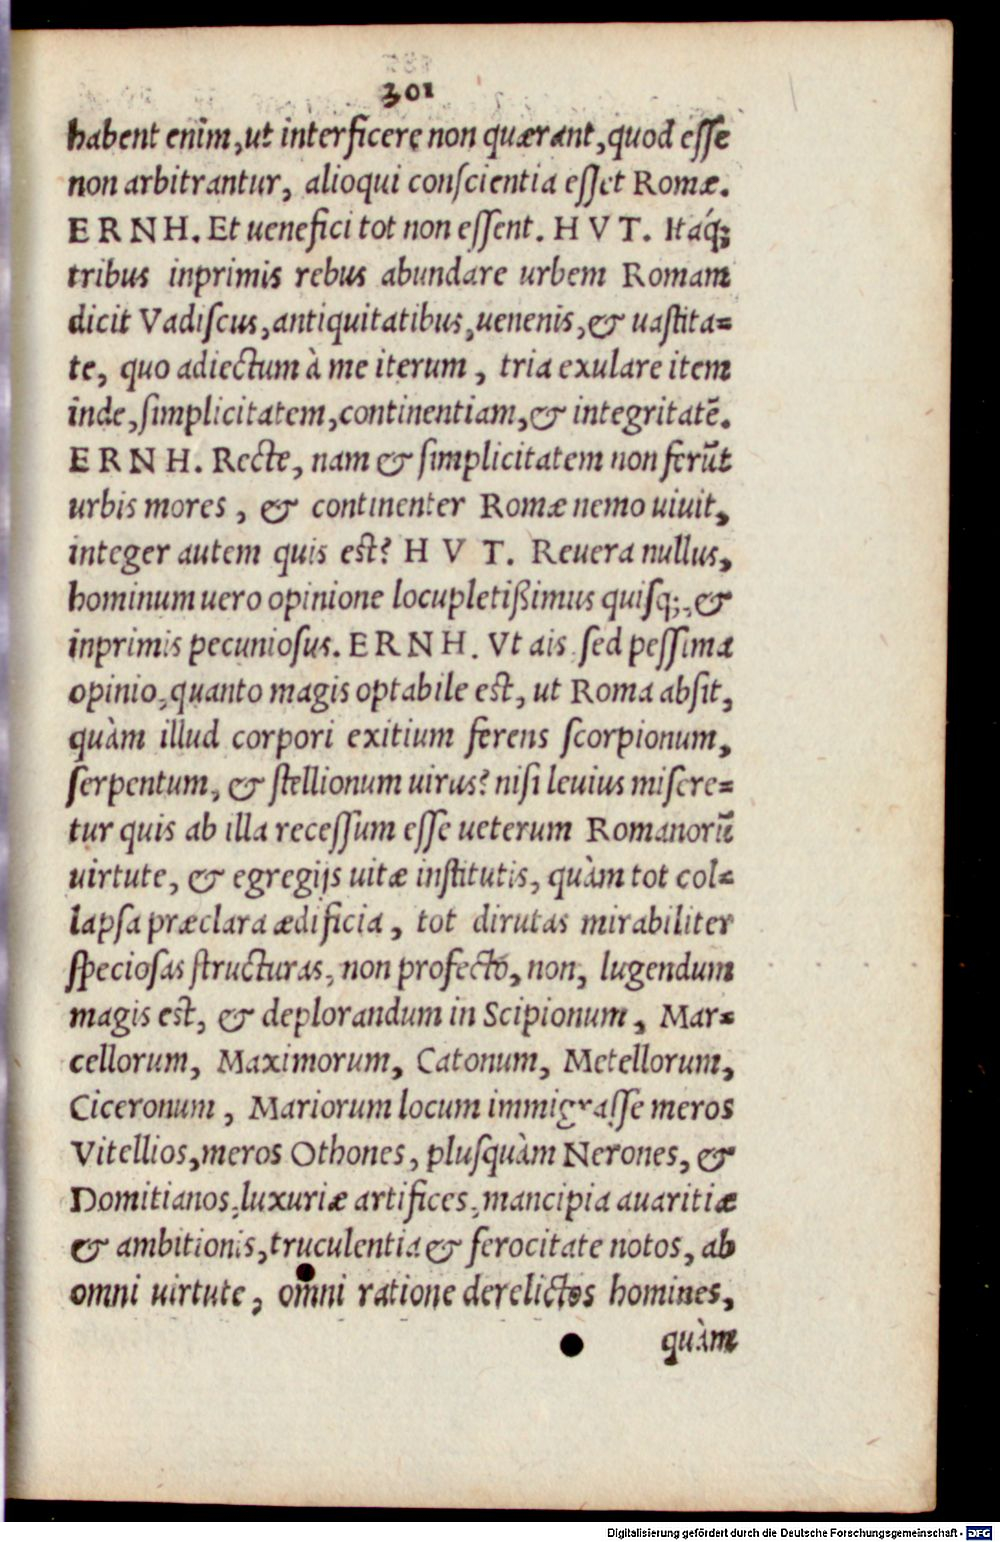 301
habent enim, ut interficere non quærant, quod esse
non arbitrantur, alioqui conscientia esset Romæ.
ERNH. Et uenefici tot non essent. HVT. Itaq́;
tribus inprimis rebus abundare urbem Romam
dicit Vadiscus, antiquitatibus, uenenis, & uastita=
te, quo adiectum à me iterum, tria exulare item
inde, simplicitatem, continentiam, & integritatē.
ERNH. Recte, nam & simplicitatem non ferūt
urbis mores, & continenter Romæ nemo uiuit,
integer autem quis est? HVT. Reuera nullus,
hominum uero opinione locupletißimus quisq;, &
inprimis pecuniosus. ERNH. Vt ais, sed pessima
opinio, quanto magis optabile est, ut Roma absit,
quàm illud corpori exitium ferens scorpionum,
serpentum, & stellionum uirus? nisi leuius misere=
tur quis ab illa recessum esse ueterum Romanorū
uirtute, & egregijs uitæ institutis, quàm tot col=
lapsa præclara ædificia, tot dirutas mirabiliter
speciosas structuras, non profecto, non, lugendum
magis est, & deplorandum in Scipionum, Mar=
cellorum, Maximorum, Catonum, Metellorum,
Ciceronum, Mariorum locum immigrasse meros
Vitellios, meros Othones, plusquàm Nerones, &
Domitianos, luxuriæ artifices, mancipia auaritiæ
& ambitionis, truculentia & ferocitate notos, ab
omni uirtute, omni ratione derelictos homines,
quàm
Digitalisierung gefördert durch die Deutsche Forschungsgemeinschaft - DFG